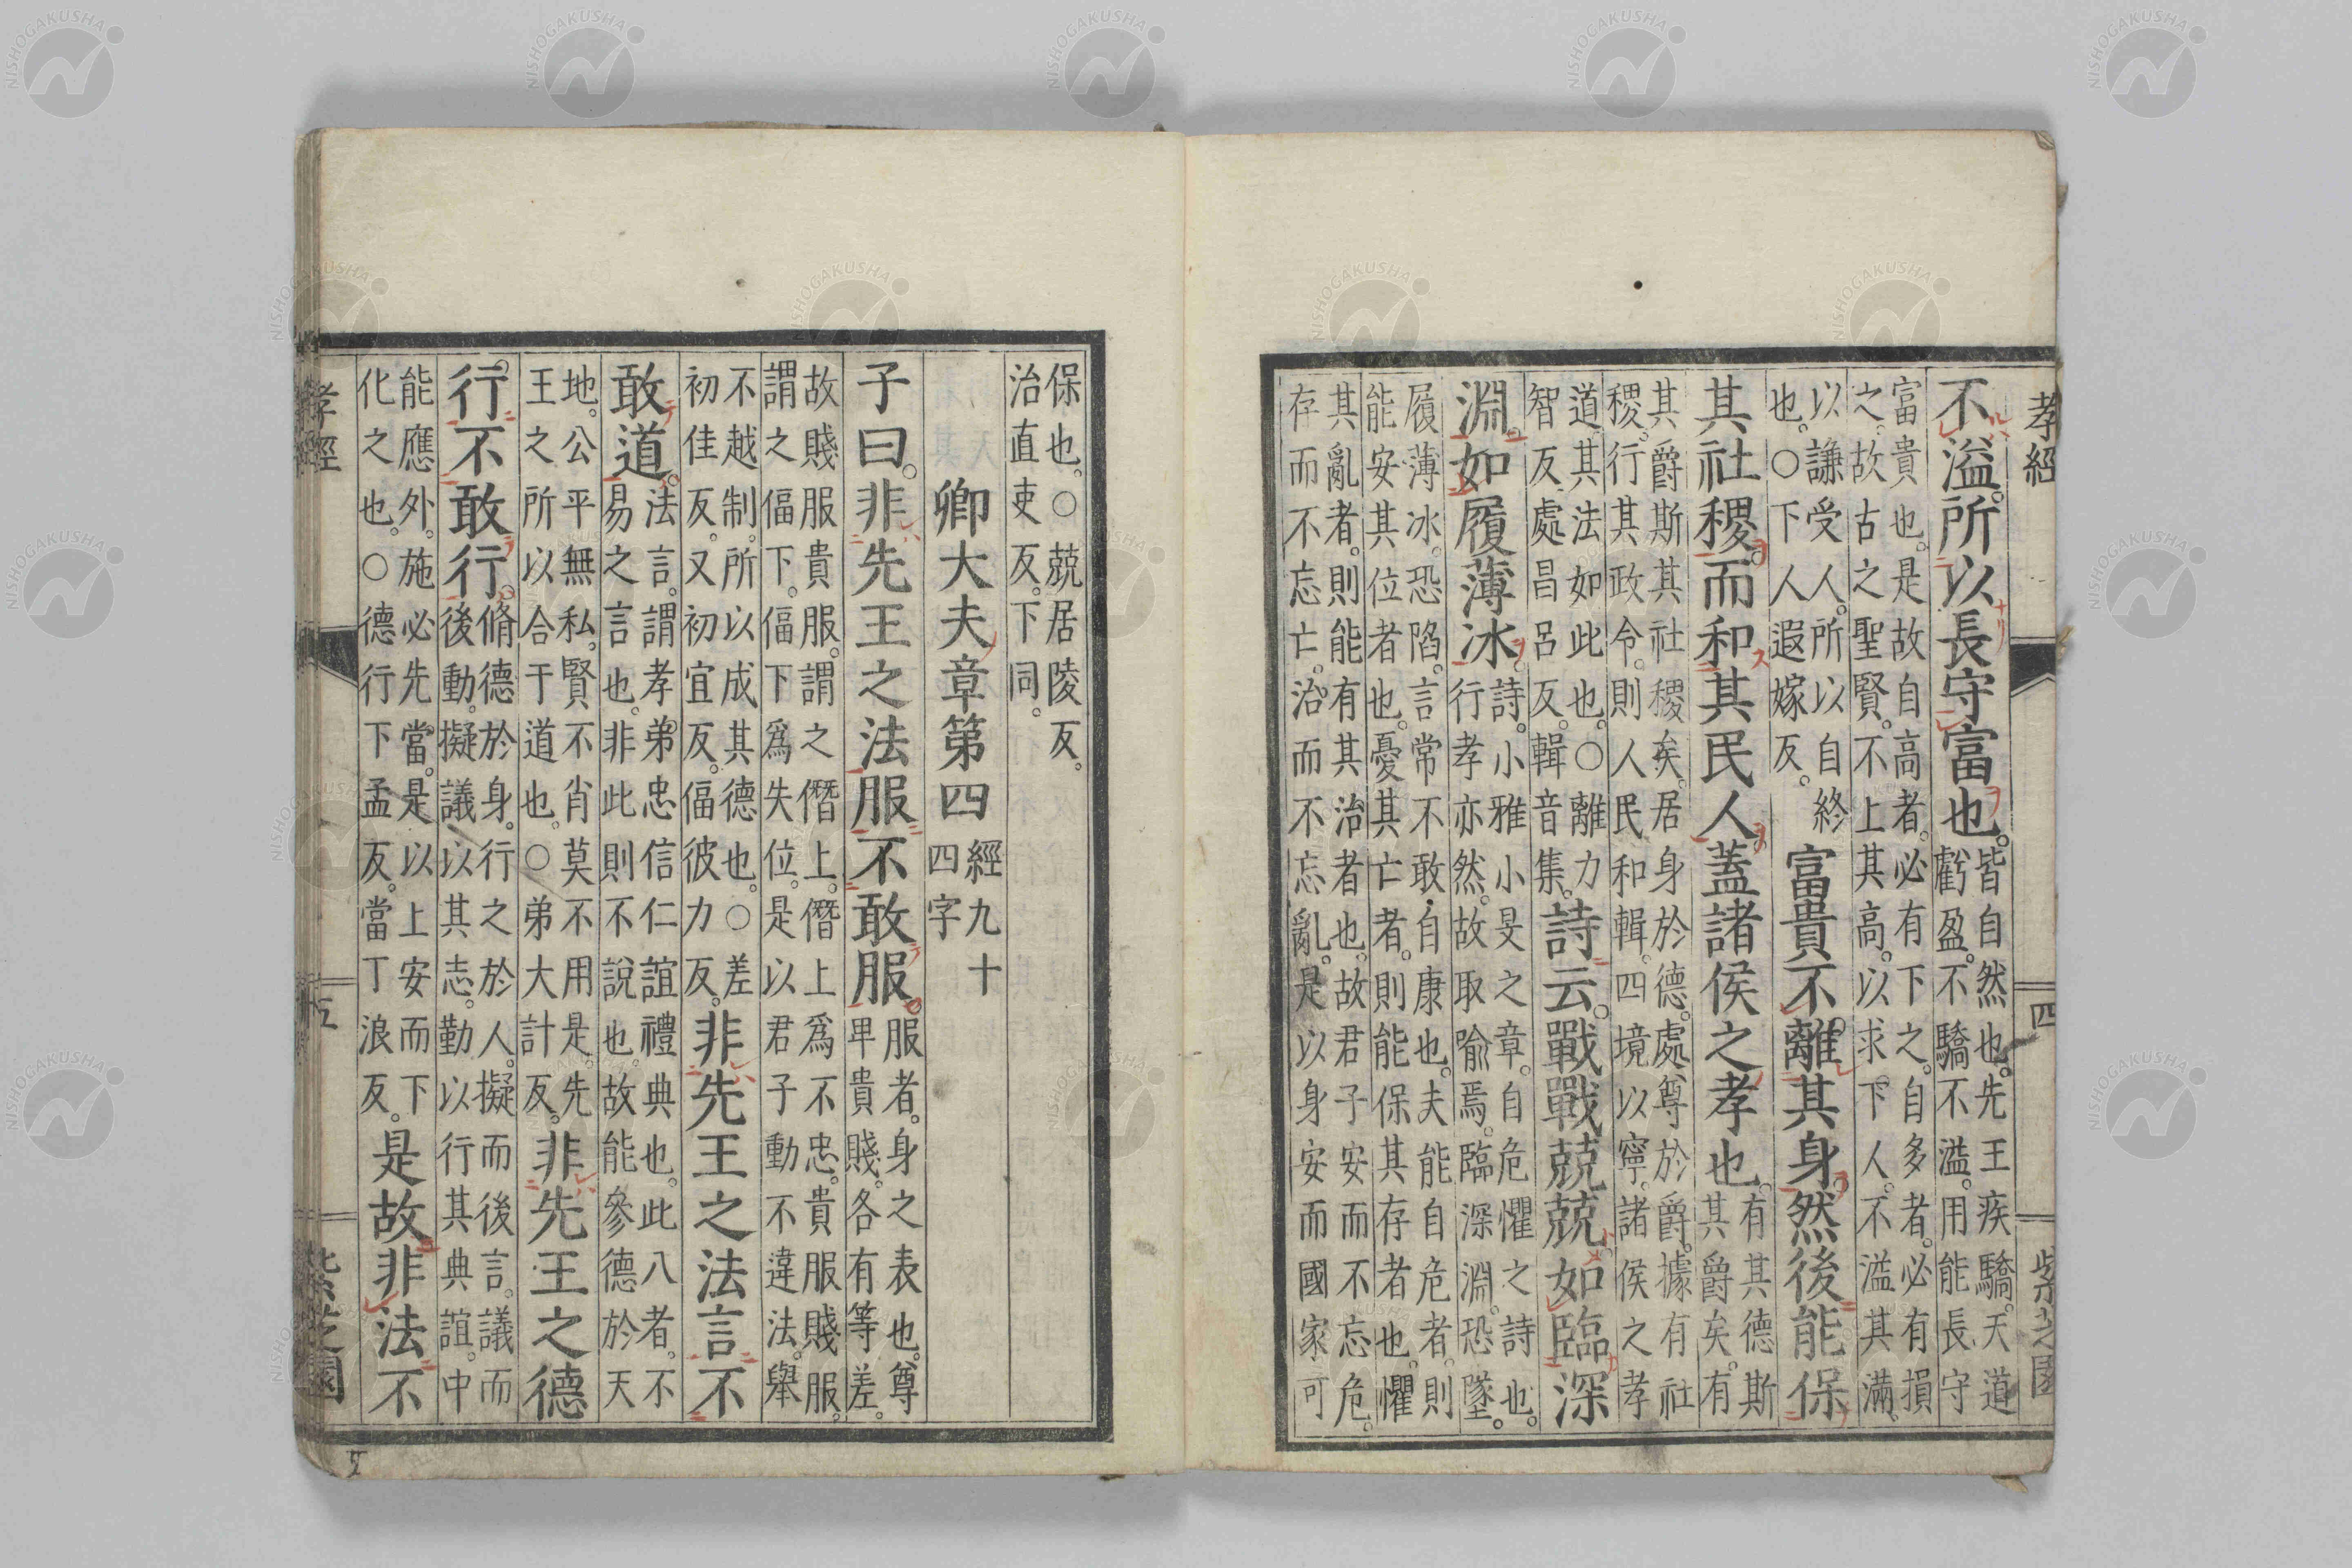 孝經　四　紫芝園
不溢。所以長守富也。皆自然也。先王疾驕。天道
虧盈。不驕不溢。用能長守
富貴也。是故自高者。必有下之。自多者。必有損
之。故古之聖賢。不上其高。以求下人。不溢其滿。
以謙受人。所以自終
也。○下人遐嫁反。
富貴不離其身。然後能保
其社稷。而和其民人。蓋諸侯之孝也。有其德斯
其爵矣。有
其爵斯其社稷矣。居身於德。處尊於爵。據有社
稷。行其政令。則人民和輯。四境以寧。諸侯之孝
道。其法如此也。○離力
智反。處昌呂反。輯音集。
詩云。戰戰兢兢。如臨深
淵。如履薄冰。詩。小雅小旻之章。自危懼之詩也。
行孝亦然。故取喻焉。臨深淵。恐墜。
履薄冰。恐陷。言常不敢自康也。夫能自危者。則
能安其位者也。憂其亡者。則能保其存者也。懼
其亂者。則能有其治者也。故君子安而不忘危。
存而不忘亡。治而不忘亂。是以身安而國家可
保也。○兢居陵反。
治直吏反。下同。
卿大夫章第四
經九十
四字
子曰。非先王之法服不敢服。服者。身之表也。尊
卑貴賤。各有等差。
故賤服貴服。謂之僭上。僭上爲不忠。貴服賤服。
謂之偪下。偪下爲失位。是以君子動不違法。舉
不越制。所以成其德也。○差
初佳反。又初宜反。偪彼力反。
非先王之法言不
敢道。法言。謂孝弟忠信仁誼禮典也。此八者。不
易之言也。非此則不說也。故能參德於天
地。公平無私。賢不肖莫不用是。先
王之所以合于道也。○弟大計反。
非先王之德
行。不敢行。脩德於身。行之於人。擬而後言。議而
後動。擬議以其志。動以行其典誼。中
能應外。施必先當。是以上安而下
化之也。○德行下孟反。當丁浪反。
是故非法不
孝經　五　紫芝園
5
NISHOGAKUSHA